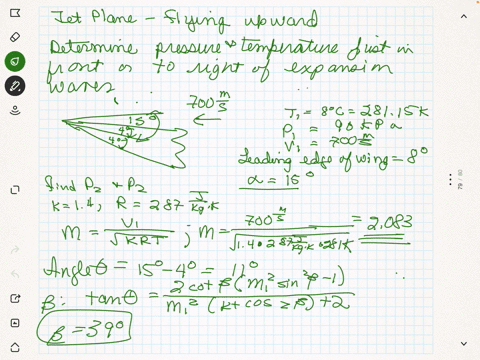 Jet Plane - Flying upward
Determine pressure & temperature just in
front or to right of expansion
waves
700 m/s
15°
4°
4°
T₁ = 8°C = 281.15K
P₁ = 90 kPa
V₁ = 700 m/s
Leading edge of wing = 8°
α = 15°
Find P₂ & P₂
K = 1.4, R = 287 J/kg·K
M = V₁/√KRT ; M = 700 m/s / √1.4·287 J/kg·K·281K = 2.083
Angle θ = 15° - 4° = 11°
β: tan θ = 2 cot β (M₁² sin²β - 1) / M₁² (K + cos 2β) + 2
β = 39°
79 / 80